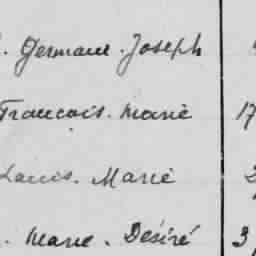 . Germain. Joseph
Francois. Marie 17
Louis. Marie 2
. Marie. Désiré 3